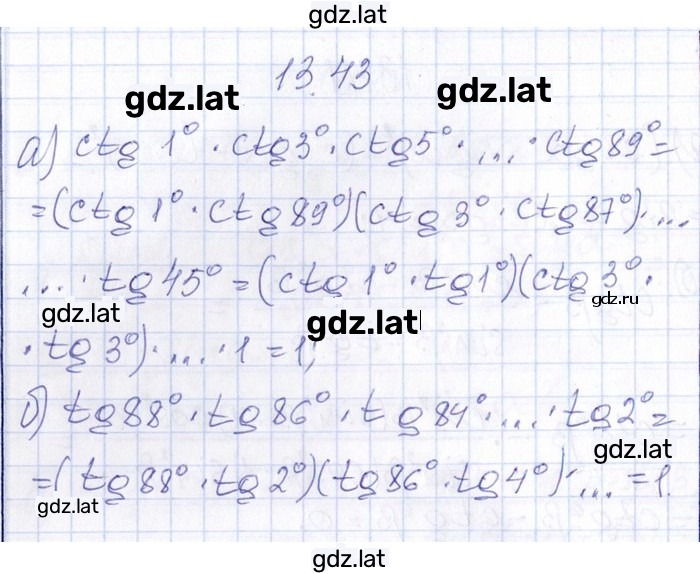 gdz.lat
13.43
gdz.lat gdz.lat
а) ctg 1° · ctg3° · ctg5° · ... · ctg89° =
= (ctg 1° · ctg 89°)(ctg 3° · ctg87°) · ...
... · tg45° = (ctg 1° · tg1°)(ctg 3° ·
gdz.ru
gdz.lat gdz.lat
· tg 3°) · ... · 1 = 1;
б) tg88° · tg86° · tg 84° · ... · tg2° =
gdz.lat
= (tg88° · tg2°)(tg86° · tg4°) · ... = 1.
gdz.lat
gdz.lat